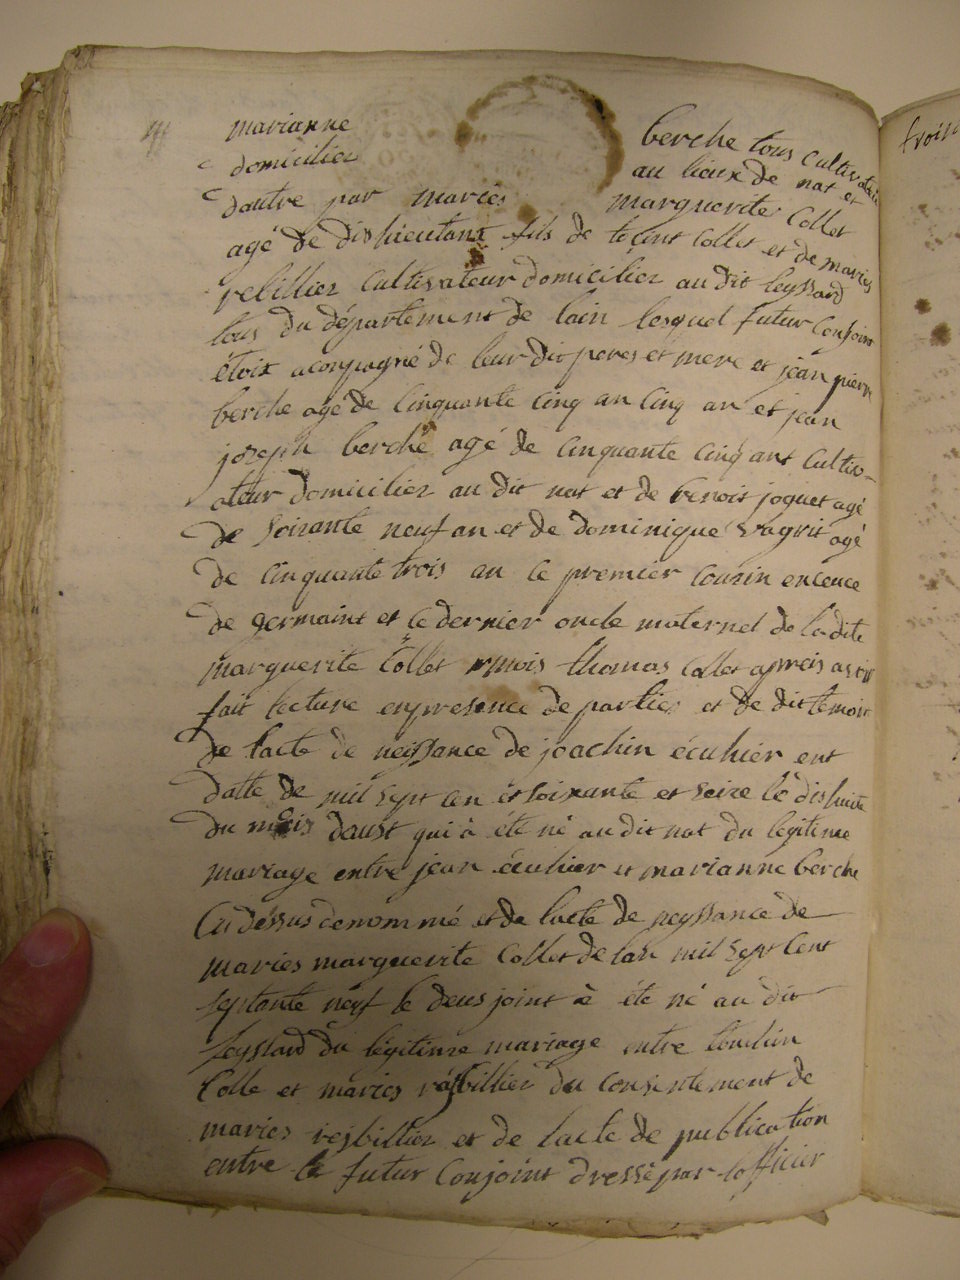 marianne berche tous cultivateur
domicilier au lieux de nat et
dautre par maries marguerite Collet
agé de dishieutant fils de toçint Collet et de maries
rebillier Cultivateur domicilier au dit leyssard
tous du département de lain lesquel futur Conjoin
étoit acompagné de leur dit peres et mere et jean pierre
berche agé de Cinquante Cinq an Cinq an et jean
joseph berche agé de Cinquante Cinq ant Cultiv-
ateur domicilier au dit nat et de benoit joquet agé
de soixante neuf an et de dominique agé
de Cinquante trois an le premier Cousin
de germaint et le dernier oncle maternel de la dite
marguerite Collet mois thomas Collet apreis avoir
fait lecture enpresence de parties et de dit temoin
de lacte de neissance de joachin écuhier ent
datte de mil sept cen et soixante et seize le dishuite
du mois daust qui à éte né au dit nat du legitime
mariage entre jean écuhier et marianne berche
Cu déssus denommé et de lacte de neyssance de
maries marguerite Collet de lan mil sept Cent
septante neuf le deus joint à éte né au dit
leyssard du légitime mariage entre
Colle et maries résbillier du consentement de
maries resbillier et de lacte de publication
entre le futur Conjoint dressé par lofficier
troisi